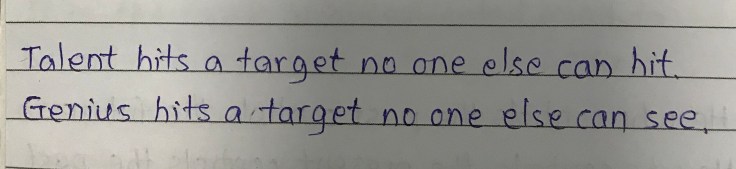 Talent hits a target no one else can hit.
Genius hits a target no one else can see.